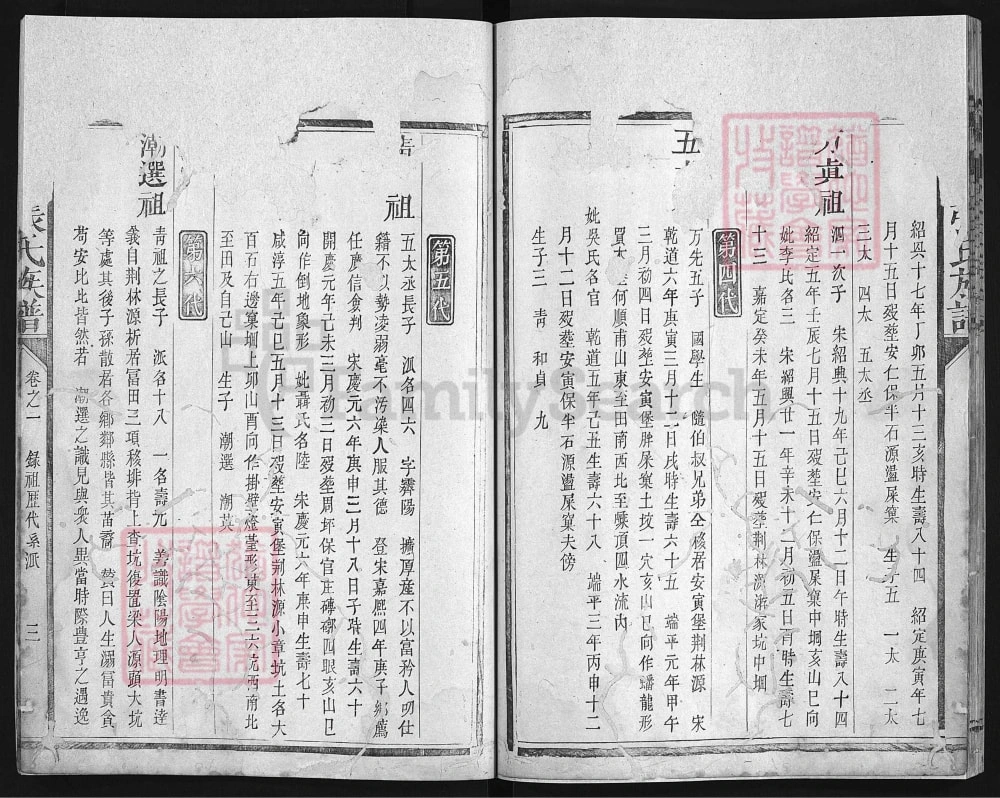 紹興十七年丁卯五月十三亥時生壽八十四 紹定庚寅年七
月十五日歿塟安仁保半石源盪屎窠 生子五 一太 二太
三太 四太 五太丞
真祖
泗一次子 宋紹興十九年己巳六月十二日午時生壽八十四
紹定五年壬辰七月十五日歿塟安仁保盪屎窠中堈亥山巳向
妣李氏各三 宋紹興廿一年辛未十二月初五日酉時生壽七
十三 嘉定癸未年五月十五日歿塟荆林源 家坑中堈
第四代
五
万先五子 國學生 隨伯叔兄弟仝移居安寅堡荆林源 宋
乾道六年庚寅三月十二日戌時生壽六十五 端平元年甲午
三月初四日歿塟安寅堡胖屎窠土坟一穴亥山巳向作蟠龍形
買 何順甫山東至田南西北至 頂圓水流內
妣吳氏各官 乾道五年己丑生壽六十八 端平三年丙申十二
月十二日歿塟安寅保半石源盪屎窠夫傍
生子三 青 和 貞 九
第五代
祖
五太丞長子 派名四六 字霽陽 擴厚産不以富矜人叨仕
籍不以勢凌弱毫不汚染人服其德 登宋嘉熙四年庚子鄉薦
任廣信僉判 宋慶元六年庚申三月十八日子時生壽六十
開慶元年己未三月初三日歿塟周坏保官庄磚嘟四眼亥山巳
向作倒地象形 妣聶氏名陸 宋慶元六年庚申生壽七十
咸淳五年己巳五月十三日歿塟安寅堡荆林源小章坑土名大
百百右邊窠堈上卯山酉向作掛壁燈盞形東至三六坑西南北
至田及自己山 生子 潮選 潮英
第六代
潮選祖
青祖之長子 派名十八 一名壽九 善識陰陽地理明書達
義自荆林源析居冨田三項移排指上查坑復置梁人源頭大坑
等處其後子孫散居各鄉鄰縣皆其苗裔 贊曰人生溺富貴貪
苟安比比皆然若 潮選之識見與衆人異當時際豊亨之遇逸
張氏族譜 卷之一 錄祖歷代系派 三